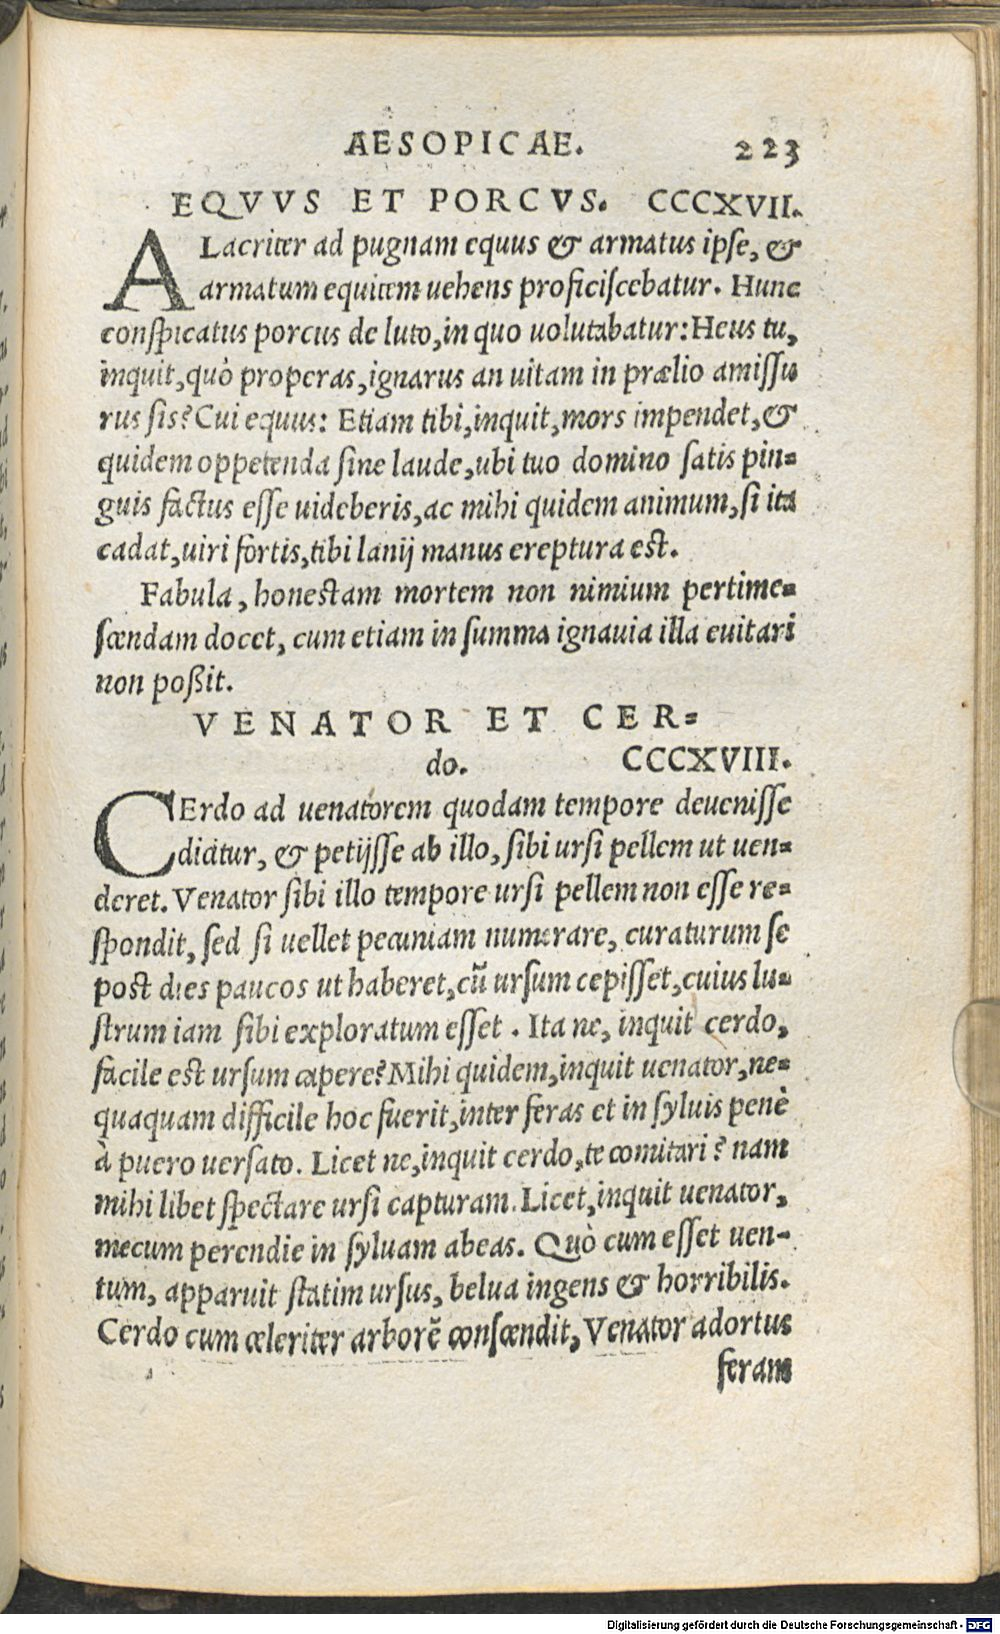 AESOPICAE. 223
EQVVS ET PORCVS. CCCXVII.
ALacriter ad pugnam equus & armatus ipse, &
armatum equitem uehens proficiscebatur. Hunc
conspicatus porcus de luto, in quo uolutabatur: Heus tu,
inquit, quò properas, ignarus an uitam in prælio amissu
rus sis? Cui equus: Etiam tibi, inquit, mors impendet, &
quidem oppetenda sine laude, ubi tuo domino satis pin=
guis factus esse uideberis, ac mihi quidem animum, si ita
cadat, uiri fortis, tibi lanij manus ereptura est.
Fabula, honestam mortem non nimium pertime=
scendam docet, cum etiam in summa ignauia illa euitari
non poßit.
VENATOR ET CER=
do. CCCXVIII.
CErdo ad uenatorem quodam tempore deuenisse
dicitur, & petijsse ab illo, sibi ursi pellem ut uen=
deret. Venator sibi illo tempore ursi pellem non esse re=
spondit, sed si uellet pecuniam numerare, curaturum se
post dies paucos ut haberet, cũ ursum cepisset, cuius lu=
strum iam sibi exploratum esset. Ita ne, inquit cerdo,
facile est ursum capere? Mihi quidem, inquit uenator, ne=
quaquam difficile hoc fuerit, inter feras et in syluis penè
à puero uersato. Licet ne, inquit cerdo, te comitari? nam
mihi libet spectare ursi capturam. Licet, inquit uenator,
mecum perendie in syluam abeas. Quò cum esset uen=
tum, apparuit statim ursus, belua ingens & horribilis.
Cerdo cum celeriter arborẽ conscendit, Venator adortus
feram
Digitalisierung gefördert durch die Deutsche Forschungsgemeinschaft - DFG